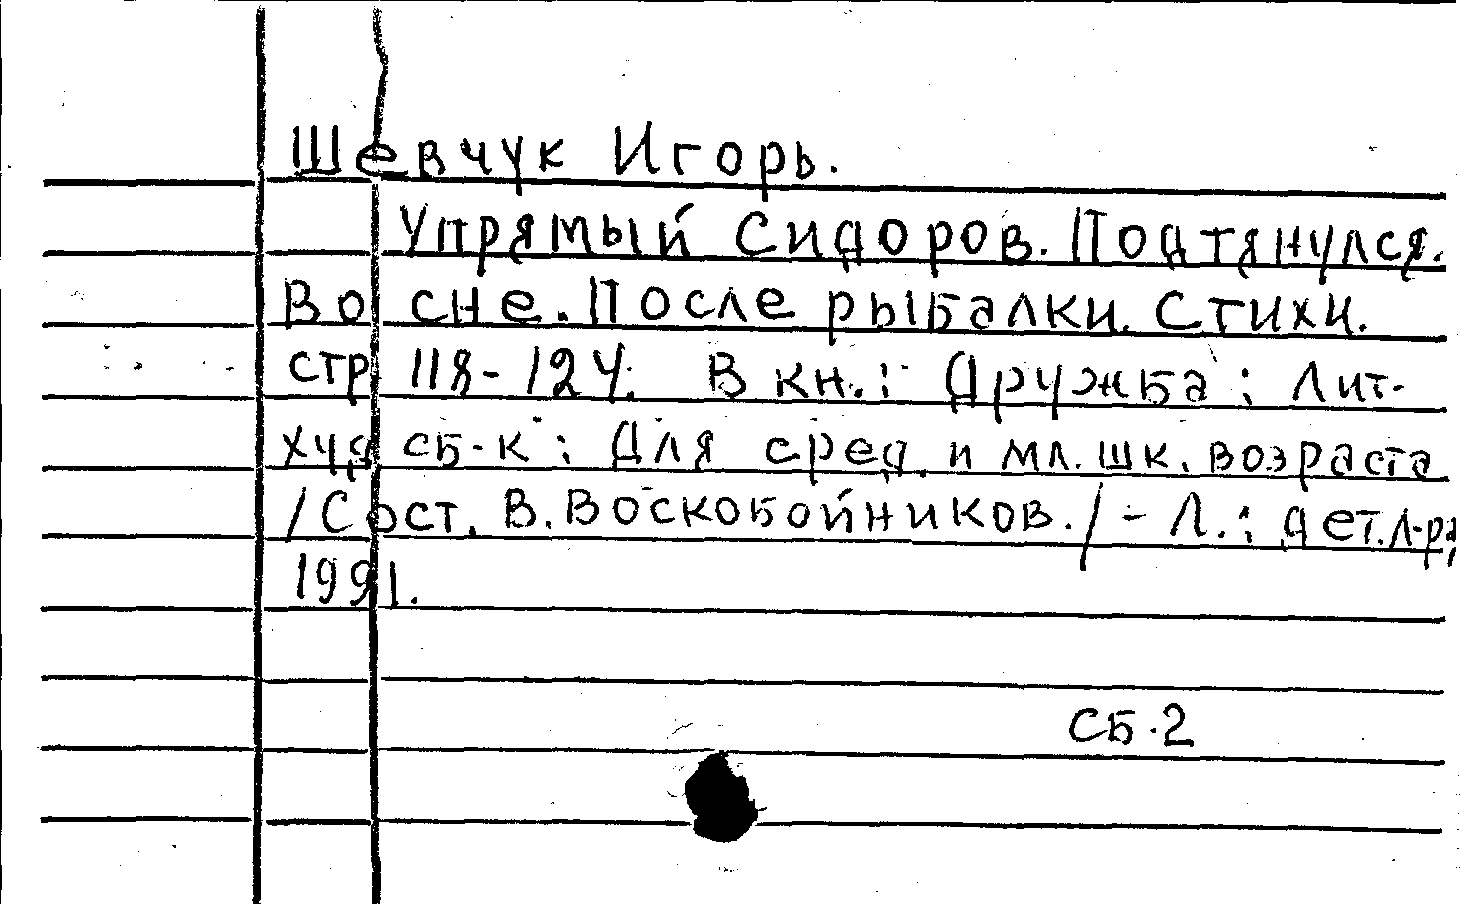 Шевчук Игорь.
Упрямый Сидоров. Подтянулся.
Во сне. После рыбалки. Стихи.
стр 118-124. В кн.: Дружба: Лит-
худ сб-к: Для сред. и мл. шк. возраста
/Сост. В. Воскобойников./ - Л.: Дет.л-ра,
1991.
СБ.2